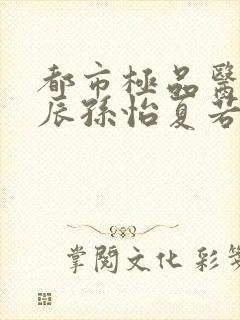 都市極品醫
辰孫怡夏若
掌閱文化 彩